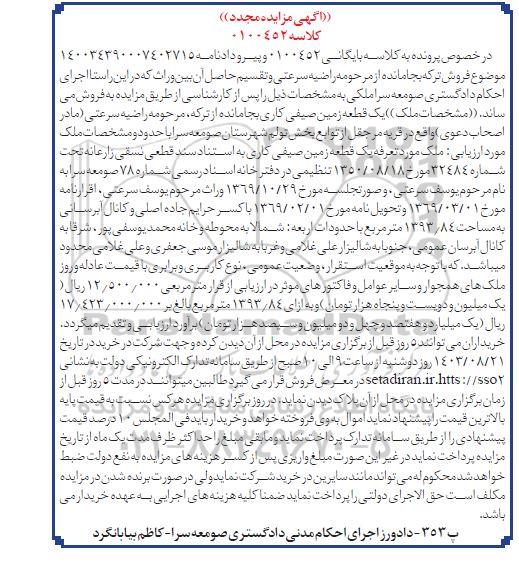 ((آگهی مزایده مجدد))
کلاسه ۰۱۰۰۴۵۲
در خصوص پرونده به کلاسه بایگانی ۰۱۰۰۴۵۲ و پیرو دادنامه ۱۴۰۰۳۴۳۹۰۰۰۷۴۰۲۷۱۵
موضوع فروش ترکه بجامانده از مرحومه راضیه سرعتی و تقسیم حاصل آن بین وراث که در این راستا اجرای
احکام دادگستری صومعه سرا ملکی به مشخصات ذیل را پس از کارشناسی از طریق مزایده به فروش می
ساند. ((مشخصات ملک)) یک قطعه زمین صیفی کاری بجامانده از ترکه، مرحومه راضیه سرعتی (مادر
اصحاب دعوی) واقع در قریه مرجقل از توابع بخش تولم شهرستان صومعه سرا با حدود و مشخصات ملک
مورد ارزیابی: ملک مورد تعرفه یک قطعه زمین صیفی کاری به استناد سند قطعی نسقی زارعانه تحت
شماره ۳۲۴۸۴ مورخ ۱۳۵۰/۰۸/۱۸ تنظیمی در دفتر خانه اسناد رسمی شماره ۷۸ صومعه سرا به
نام مرحوم یوسف سرعتی، و صورتجلسه مورخ ۱۳۶۹/۱۰/۲۹ وراث مرحوم یوسف سرعتی، اقرارنامه
مورخ ۱۳۶۹/۰۳/۰۱ و تحویل نامه مورخ ۱۳۶۹/۰۲/۰۱ با کسر حرایم جاده اصلی و کانال آبرسانی
به مساحت ۱۳۹۳٫۸۴ متر مربع با حدودات اربعه: شمالا به محوطه و خانه محمد یوسفی پور، شرقا به
کانال آبرسان عمومی، جنوبا به شالیزار علی غلامی و غربا به شالیزار موسی جعفری و علی غلامی محدود
میباشد. که با توجه به موقعیت استقرار، وضعیت عمومی، نوع کاربری و برابری با قیمت عادله و روز
ملک های همجوار و سایر عوامل و فاکتورهای موثر در ارزیابی از قرار متر مربعی ۱۲٫۵۰۰٫۰۰۰ ریال (
یک میلیون و دویست و پنجاه هزار تومان) و به ازای ۱۳۹۳٫۸۴ متر مربع بالغ بر ۱۷٫۴۲۳٫۰۰۰٫۰۰۰
ریال (یک میلیارد و هفتصد و چهل و دو میلیون و سیصد هزار تومان) برآورد ارزیابی و تقدیم میگردد.
خریداران می توانند ۵ روز قبل از برگزاری مزایده در محل از آن دیدن کرده و جهت شرکت در خرید در تاریخ
۱۴۰۳/۰۸/۲۱ روز دوشنبه از ساعت ۹ الی ۱۰ صبح از طریق سامانه تدارک الکترونیکی دولت به نشانی
setadiran.ir.htts://sso۲ در معرض فروش قرار می گیرد طالبین میتوانند در مدت ۵ روز قبل از
زمان برگزاری مزایده در محل از آن پلاک دیدن نماید، در روز برگزاری مزایده هر کس نسبت به قیمت پایه
بالاترین قیمت را پیشنهاد نماید اموال به وی فروخته خواهد و خریدار باید فی المجلس ۱۰ درصد قیمت
پیشنهادی را از طریق سامانه تدارک پرداخت نماید و مابقی مبلغ را حداکثر ظرف مدت یک ماه از تاریخ
مزایده پرداخت نماید در غیر این صورت مبلغ واریزی پس از کسر هزینه های مزایده به نفع دولت ضبط
خواهد شد محکوم له می تواند مانند سایرین در خرید شرکت نماید ولی در صورت برنده شدن در مزایده
مکلف است حق الاجرای دولتی را پرداخت نماید ضمنا کلیه هزینه های اجرایی به عهده خریدار می
باشد.
پ ۳۵۳- دادورز اجرای احکام مدنی دادگستری صومعه سرا- کاظم بیابانگرد